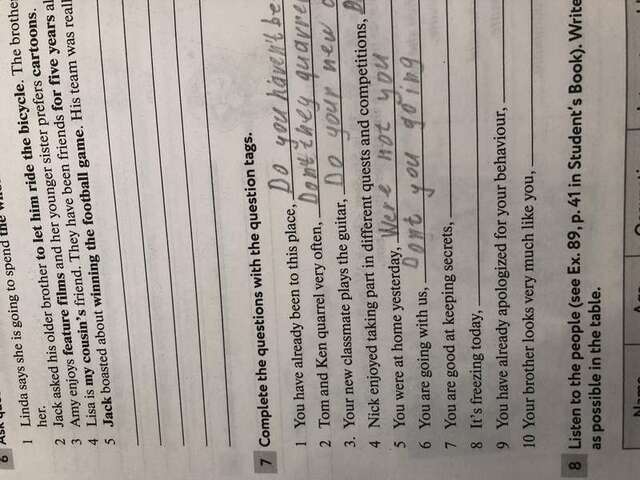 6
1 Linda says she is going to spend the
the bicycle. The brother
her.
2 Jack asked his older brother to let him ride the bicycle.
3 Amy enjoys feature films and her younger sister prefers cartoons.
4 Lisa is my cousin's friend. They have been friends for five years
5 Jack boasted about winning the football game. His team was
7 Complete the questions with the question tags.
1 You have already been to this place, Do you haven't be
2 Tom and Ken quarrel very often, Dont they quarre
3. Your new classmate plays the guitar, Do your new
4 Nick enjoyed taking part in different quests and competitions,
5 You were at home yesterday, Were not you
6 You are going with us, Dont you going
7 You are good at keeping secrets,
8 It's freezing today,
9 You have already apologized for your behaviour,
10 Your brother looks very much like you,
8 Listen to the people (see Ex. 89, p. 41 in Student's Book). Write
as possible in the table.